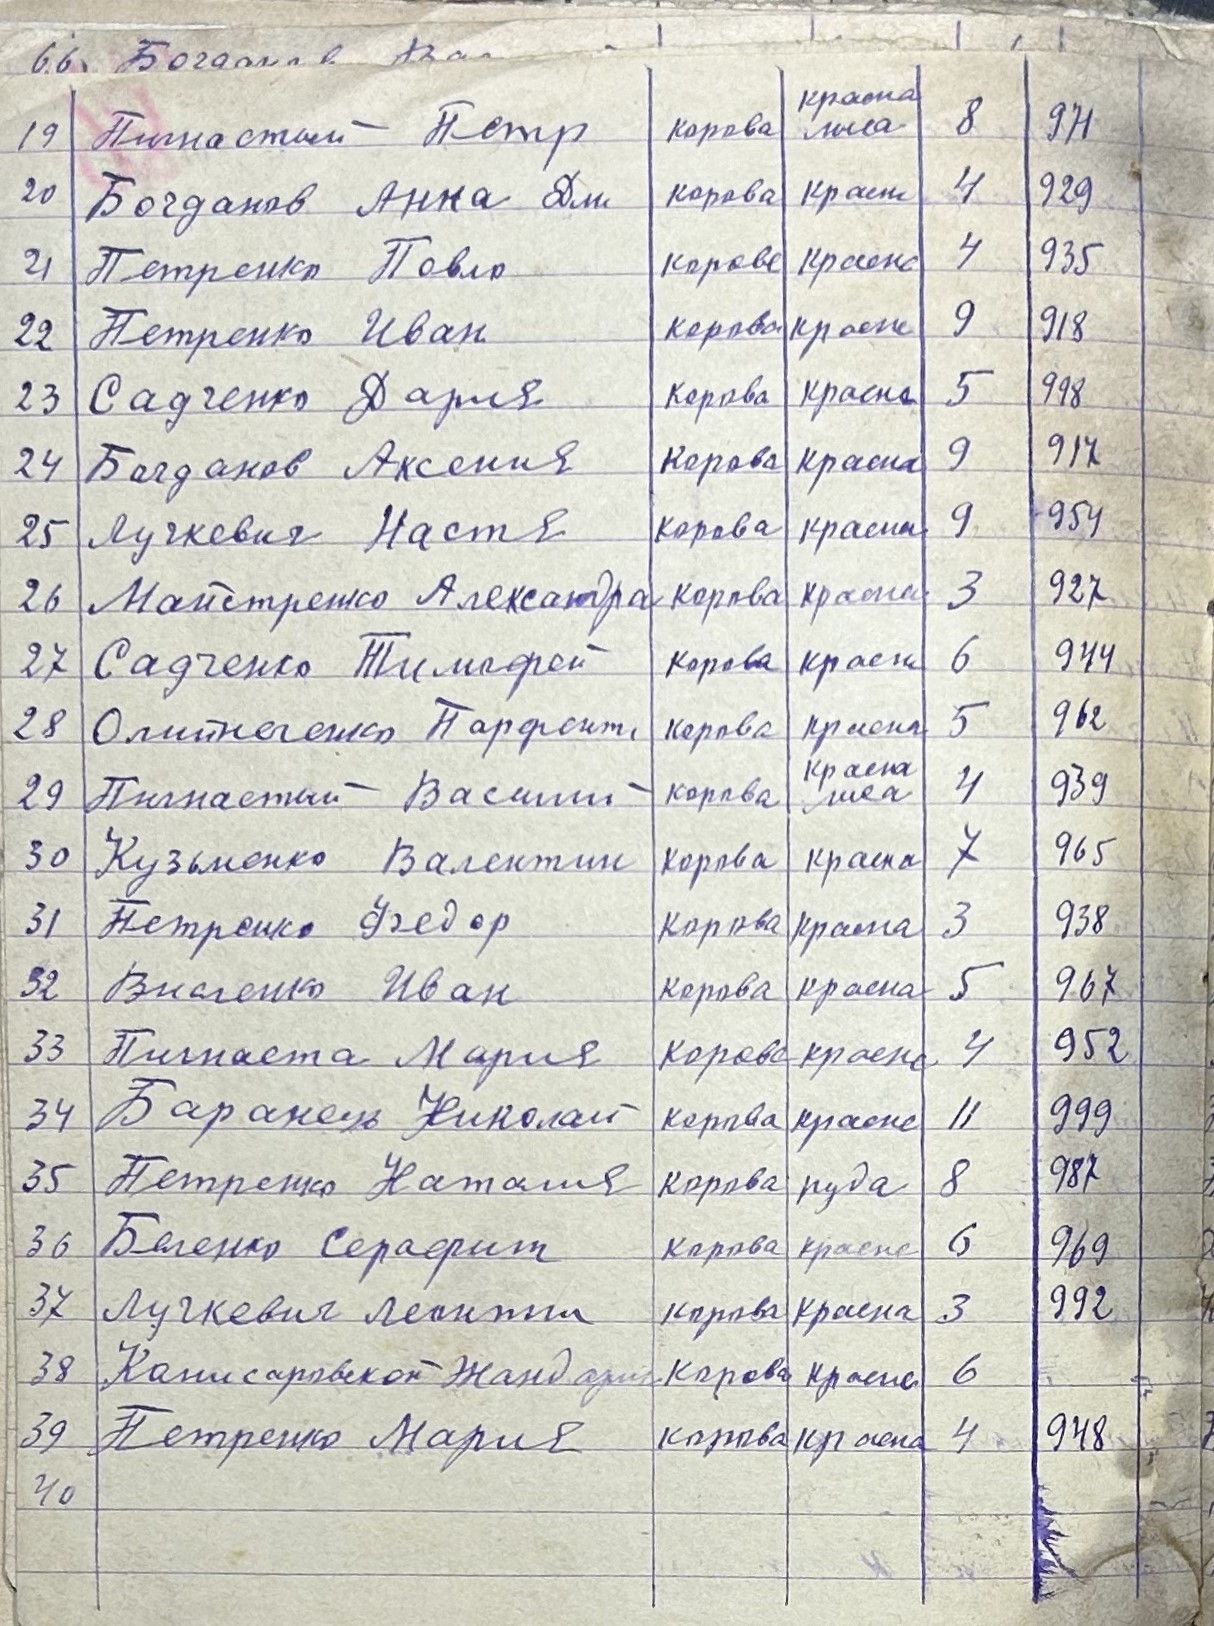 66. Богданов
19 Пигнастый Петр корова красна лиса 8 971
20 Богданов Анна Дм корова красн 4 929
21 Петренко Павло корова красна 4 935
22 Петренко Иван корова красна 9 918
23 Садченко Дария корова красна 5 998
24 Богданов Аксения корова красна 9 917
25 Лучкевич Настя корова красна 9 954
26 Майстренко Александра корова красна 3 927
27 Садченко Тимофей корова красн 6 944
28 Парфент корова красна 5 962
29 Пигнастый Василий корова красна лиса 4 939
30 Кузьменко Валентин корова красна 7 965
31 Петренко Федор корова красна 3 938
32 Иван корова красна 5 967
33 Пигнаста Мария корова красна 4 952
34 Баранець Николай корова красна 11 999
35 Петренко Наталия корова руда 8 987
36 Беленко Серафим корова красна 6 969
37 Лучкевич Леонтии корова красна 3 992
38 корова красна 6
39 Петренко Мария корова красна 4 948
40